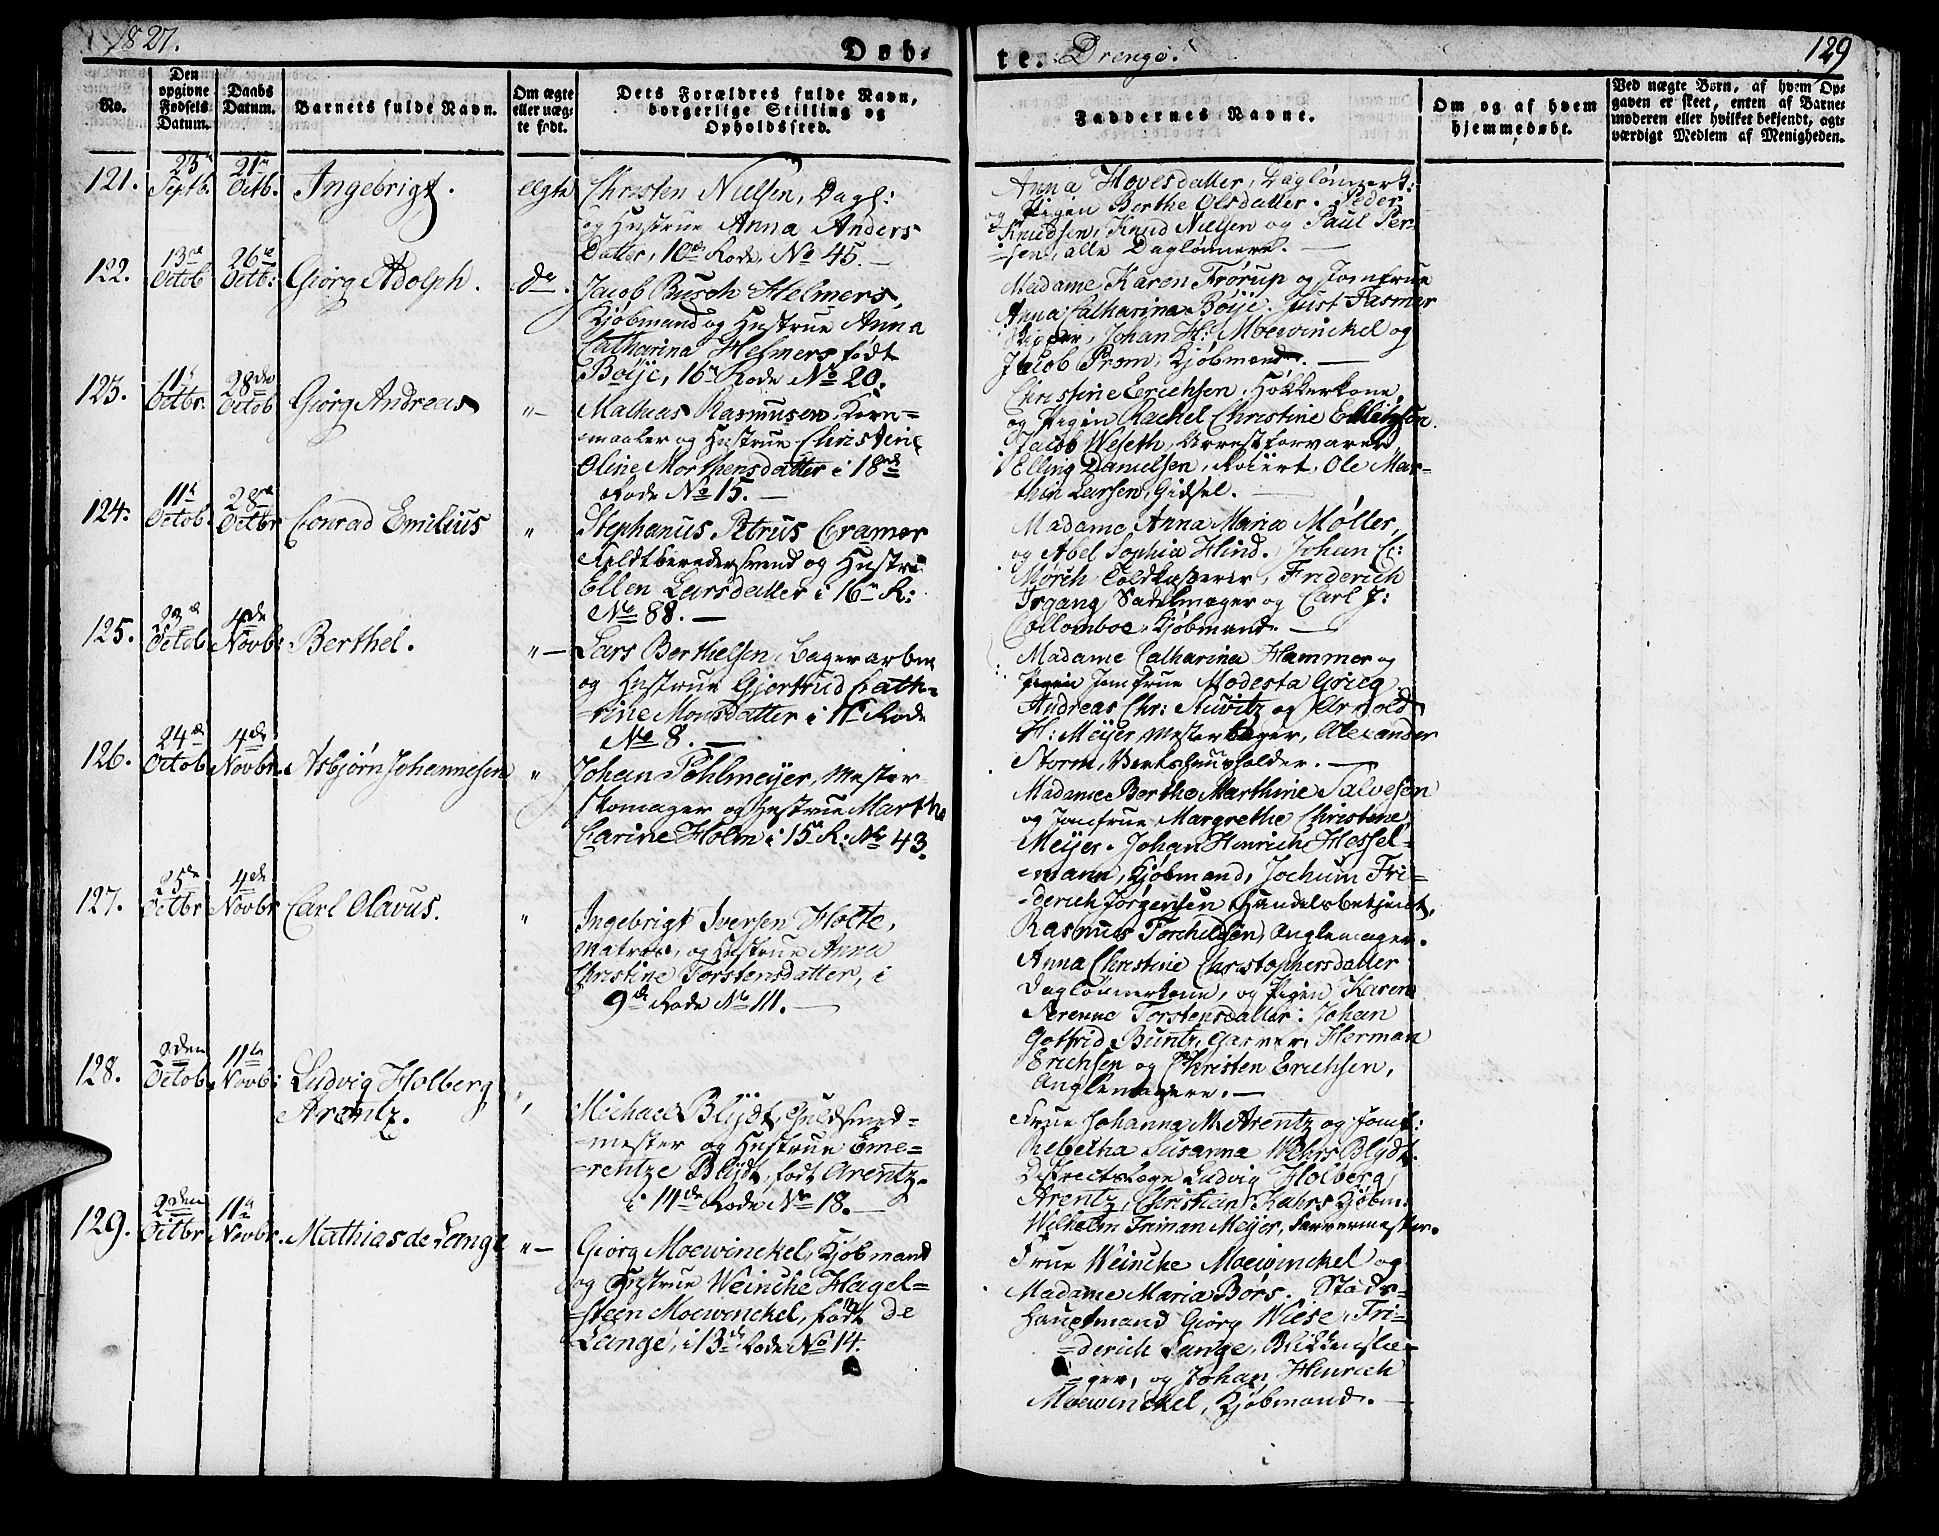 1827.
Døb-
te. Drenge.
129
No.
Den opgivne Fødsels Datum.
Daabs Datum.
Barnets fulde Navn.
Om ægte eller uægte født.
Dets Forældres fulde Navn, borgerlige Stilling og Opholdssted.
Faddernes Navne.
Om og af hvem hjemmedøbt.
Ved uægte Børn, af hvem Opgaven er skeet, enten af Barnemoderen eller hvilket bekjendt, agtværdigt Medlem af Menigheden.
121.
Septb.
21
Octb.
Ingebrigt.
ægte
Christen Nielsen, Dagl:
og Hustrue Anna Anders
Datter, 10de Rode No 45. —
Anna Hovesdatter, Daglønnerk:
og Pigen Berthe Olsdatter. Peder
Knudsen, Knud Nielsen og Paul Per-
=sen, alle Daglønnere. —
122.
13
Octob
26
Octb:
Giørg Adolph.
do.
Jacob Busch Helmers,
Kjøbmand og Hustrue Anna
Catharina Helmers født
Böije, 16 Rode No 20.
Madame Karen Trørup og Jomfrue
Anna Catharina Böije. Just Fasmer
Skipper, Johan H. Moewinckel og
Jacob Prom, Kjøbmænd. —
123.
11
Octbr.
28de
Octob
Giørg Andreas
"—
Mathias Rasmusen, Korn-
=maaler og Hustrue Christine
Oline Morthensdatter i 18de
Rode No 15. —
Christine Erichsen, Høkkerkone,
og Pigen Rachel Christine Ellingsen.
Jacob Weseth, Arrestforvarer
Elling Danielsen, Ole Mar-
thin Larsen, Gidsel. —
124.
11
Octob.
28
Octbr
Conrad Emilius
"
Stephanus Petrus Cramer
Feldtberedersvend og Hustru
Ellen Larsdatter i 16 R:
No 88. —
Madame Anna Maria Møller,
og Abel Sophia Hind. Johan C:
Mörch Toldkasserer, Friderich
Irgang Sadelmager og Carl J:
Collomboe, Kjøbmand. —
125.
23
Octob.
4de
Novbr:
Berthel.
"—
Lars Berthelsen, Bagerarbm
og Hustrue Gjertrud Cath-
=rine Monsdatter i 11 Rode
No 8. —
Madame Catharina Hammer og
Jomfrue Modesta Grieg
Andreas Chr: og Arnold
H: Meyer Mesterbager, Alexander
Storm, Vertshuusholder. —
126.
24
Octob
4de
Novbr.
Asbjørn Johannesen
"
Johan Pohlmeyer, Mester
Skomager og Hustrue Marthe
Carine Holm i 15 R: No 43.
Madame Berthe Marthine Salvesen
og Jomfrue Margrethe Christine
Meijer. Johan Hinrich Hessel-
=mann, Kjøbmand, Jochum Fri-
=derich Jørgensen Handelsbetjent,
Rasmus Torchildsen, Anglemager.
127.
25
Octbr
4de
Novbr
Carl Olavus.
"
Ingebrigt Iversen Holte,
Matros, og Hustrue Anna
Christine Torstensdatter, i
9de Rode No 111. —
Anna Christine Christophersdatter
Daglønnerkone, og Pigen Karen
Serenne Torstensdatter. Johan
Gotfrid Buntz, Garver, Herman
Erichsen og Christen Erichsen,
Anglemagere. —
128.
2den
Octob.
11te
Novbr:
Ludvig Holberg
Arentz.
",
Michael Blijdt, Guldsmed-
=mester og Hustrue Eme-
=rentze Blijdt, født Arentz.
i 14de Rode No 18. —
Frue Johanna M. Arentz og Jomf:
Rebecka Susanna Wehrs Blydt.
Districtslæge Ludvig Holberg
Arentz, Christian Kahrs Kjøbm.
Wilhelm Friman Meijer, Farvermester.
129.
2den
Octbr
11
Novbr.
Mathias de Lange
"—
Giørg Moewinckel, Kjøbmand
og Hustrue Weinche Hagel-
=steen Moewinckel, født de
Lange, i 13de Rode No 14.
Frue Weinche Moewinckel og
Madame Maria Børs. Stads-
hauptmand Giørg Wiese, Fri-
=derich Lange, Blikkenslæ-
=ger, og Johan Hinrich
Moewinckel, Kjøbmand. —